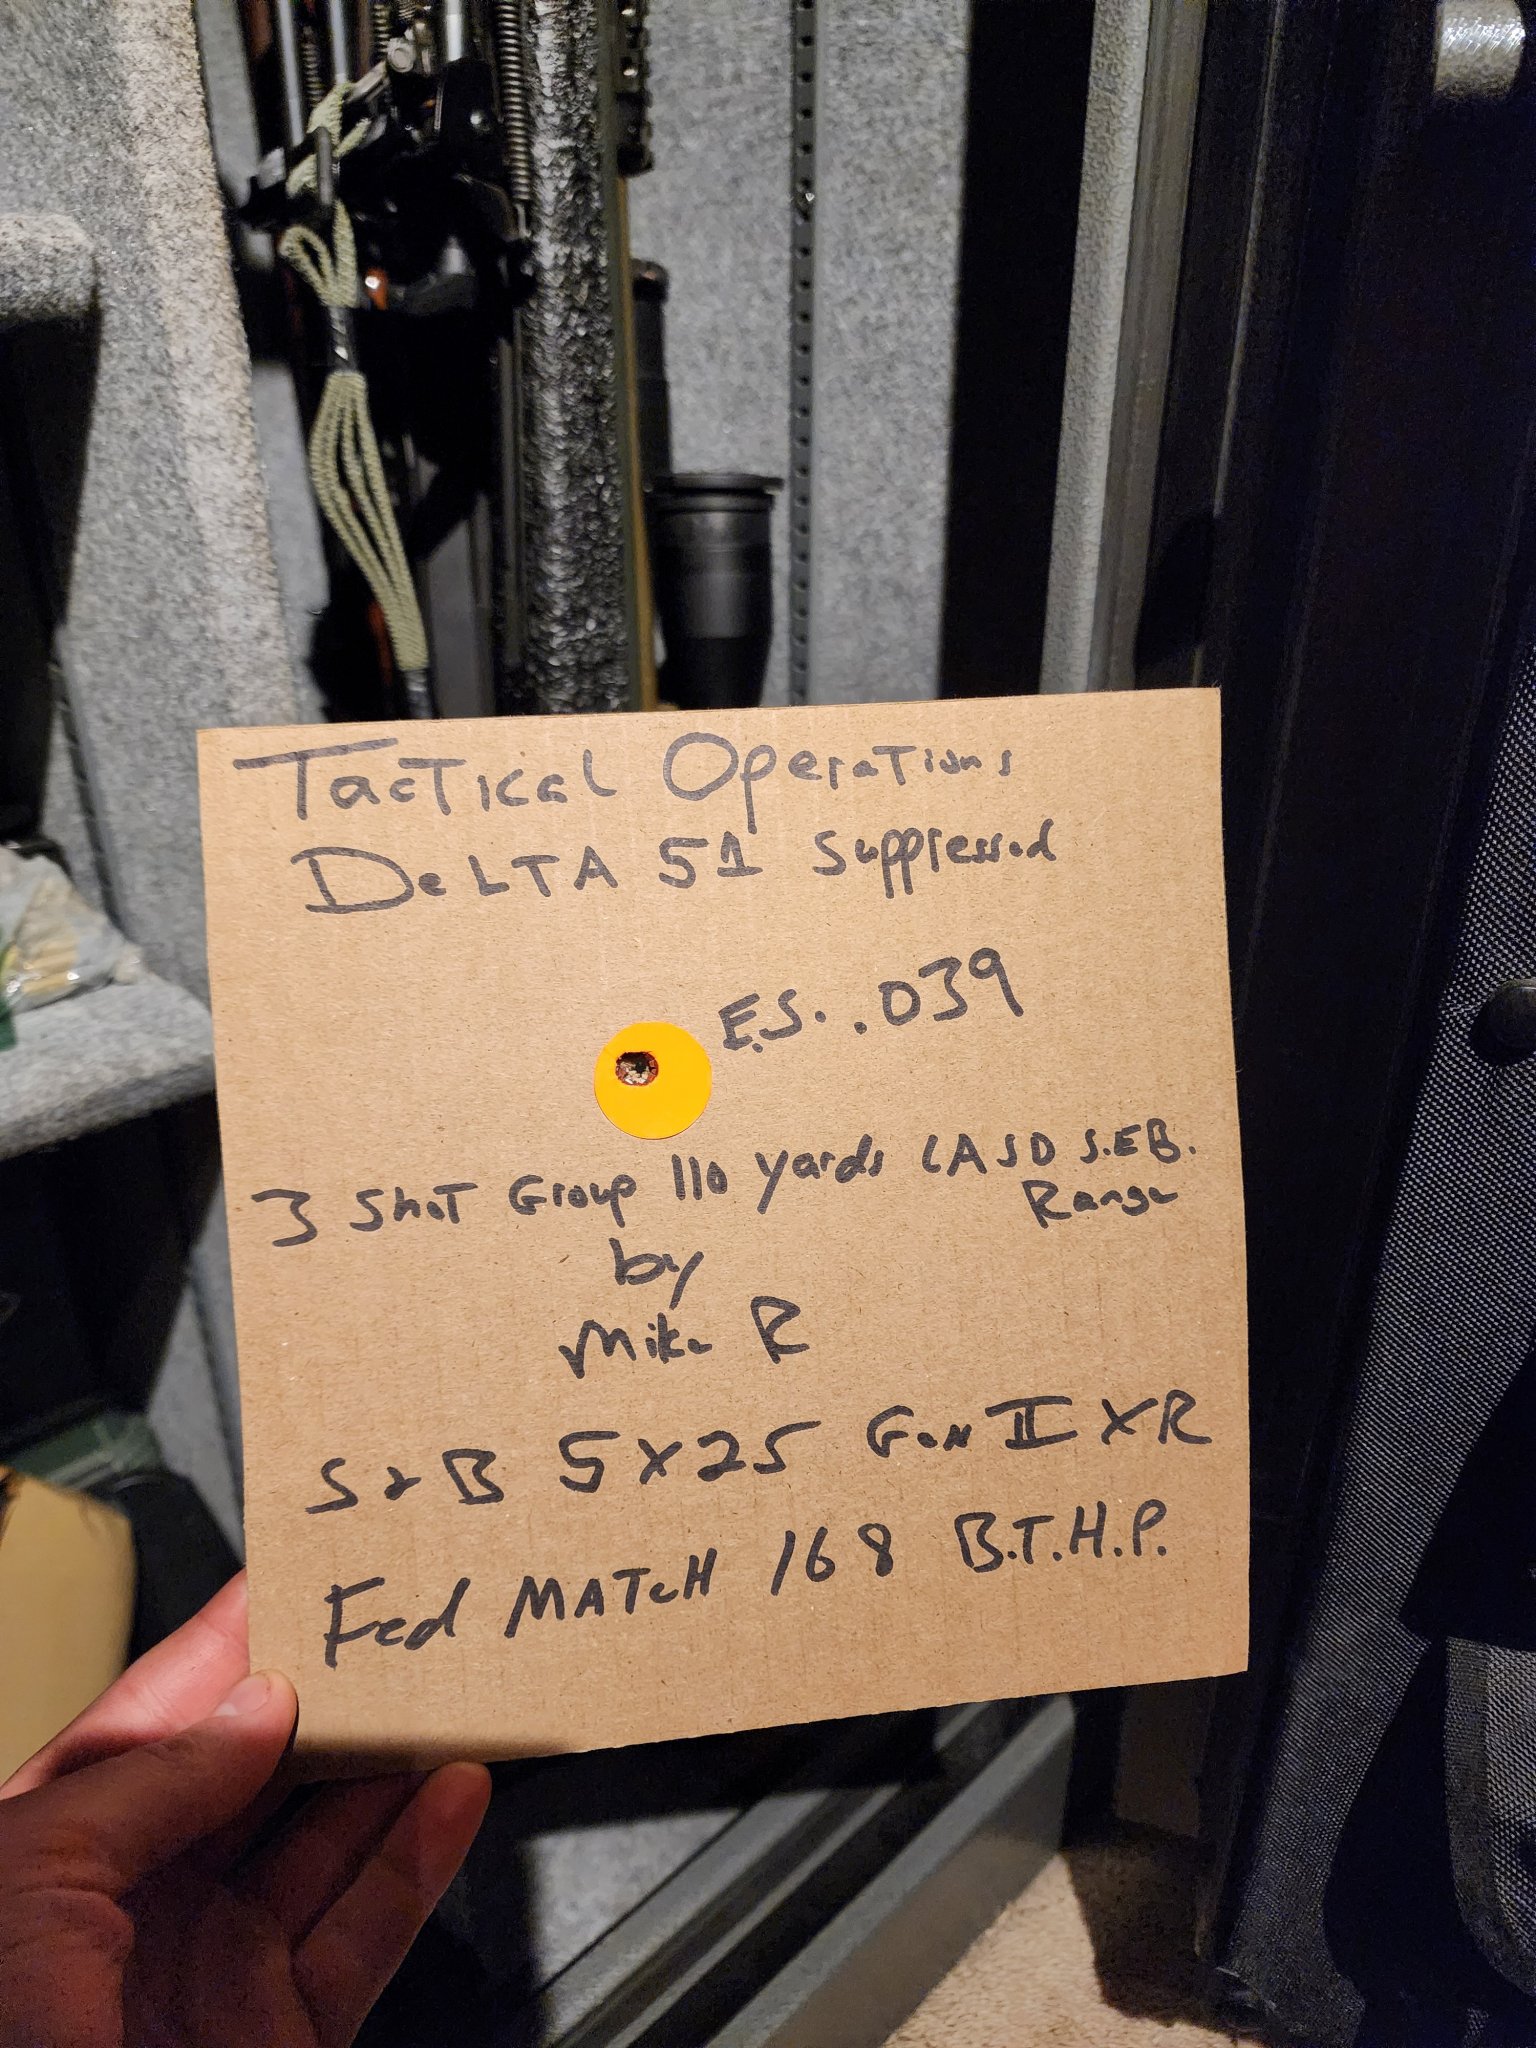 Tactical Operations
DeLTA 51 Suppressed
E.S. .039
3 Shot Group 110 yards LASD S.E.B.
Range
by
Mike R
S & B 5x25 Gen II XR
Fed MATcH 168 B.T.H.P.